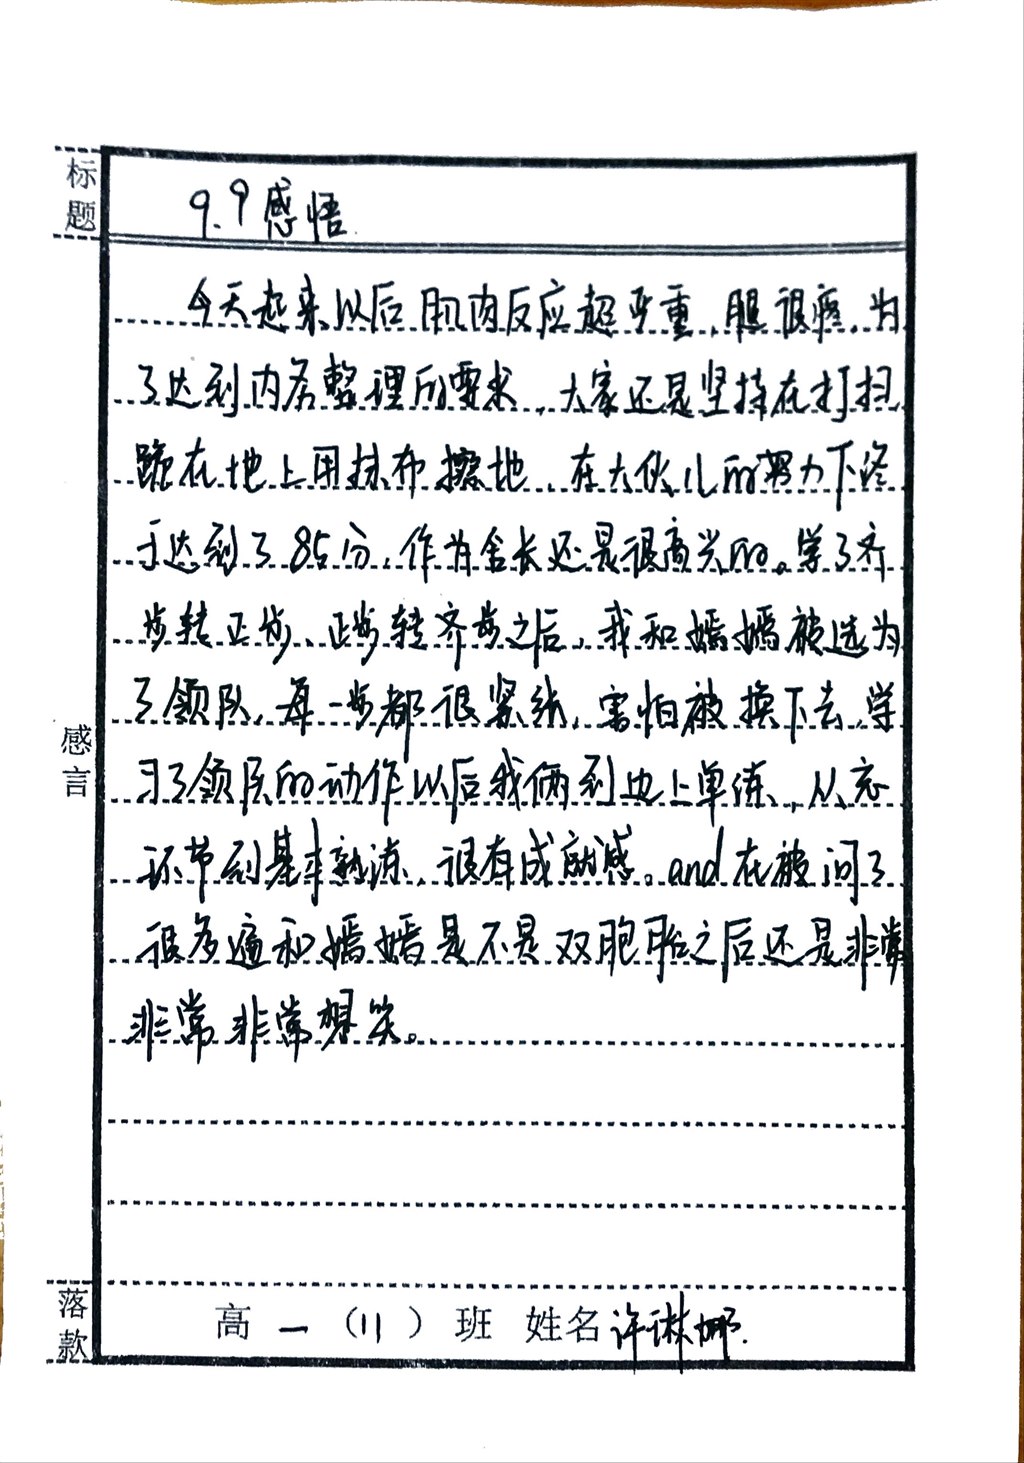 标题
9.9感悟
今天起来以后肌肉反应超严重，腿很疼，为
了达到内务整理的要求，大家还是坚持在打扫
跪在地上用抹布擦地，在大伙儿的努力下终
于达到了85分，作为舍长还是很高兴的。学了齐
步转正步、正步转齐步之后，我和嫣嫣被选为
了领队，每一步都很紧张，害怕被换下去，学
习了领队的动作以后我俩到边上单练，从忘
环节到基本熟练，很有成就感。and在被问了
很多遍和嫣嫣是不是双胞胎之后还是非常
非常非常想笑。
感言
落款
高一（11）班 姓名许琳娜.